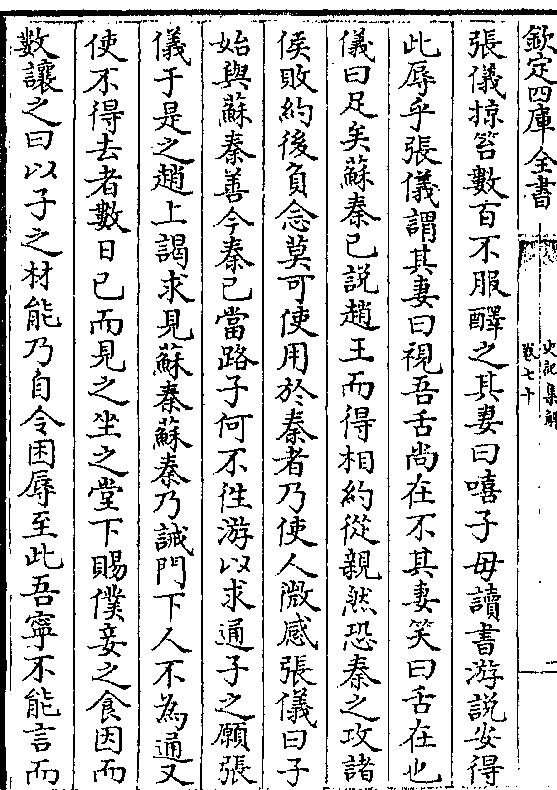 欽定四庫全書
史記集解
卷七十
張儀掠笞數百不服醳之其妻曰嘻子毋讀書游說安得
此辱乎張儀謂其妻曰視吾舌尚在不其妻笑曰舌在也
儀曰足矣蘇秦已說趙王而得相約從親然恐秦之攻諸
侯敗約後負念莫可使用於秦者乃使人微感張儀曰子
始與蘇秦善今秦已當路子何不徃游以求通子之願張
儀于是之趙上謁求見蘇秦蘇秦乃誡門下人不為通又
使不得去者數日已而見之坐之堂下賜僕妾之食因而
數讓之曰以子之材能乃自令困辱至此吾寧不能言而